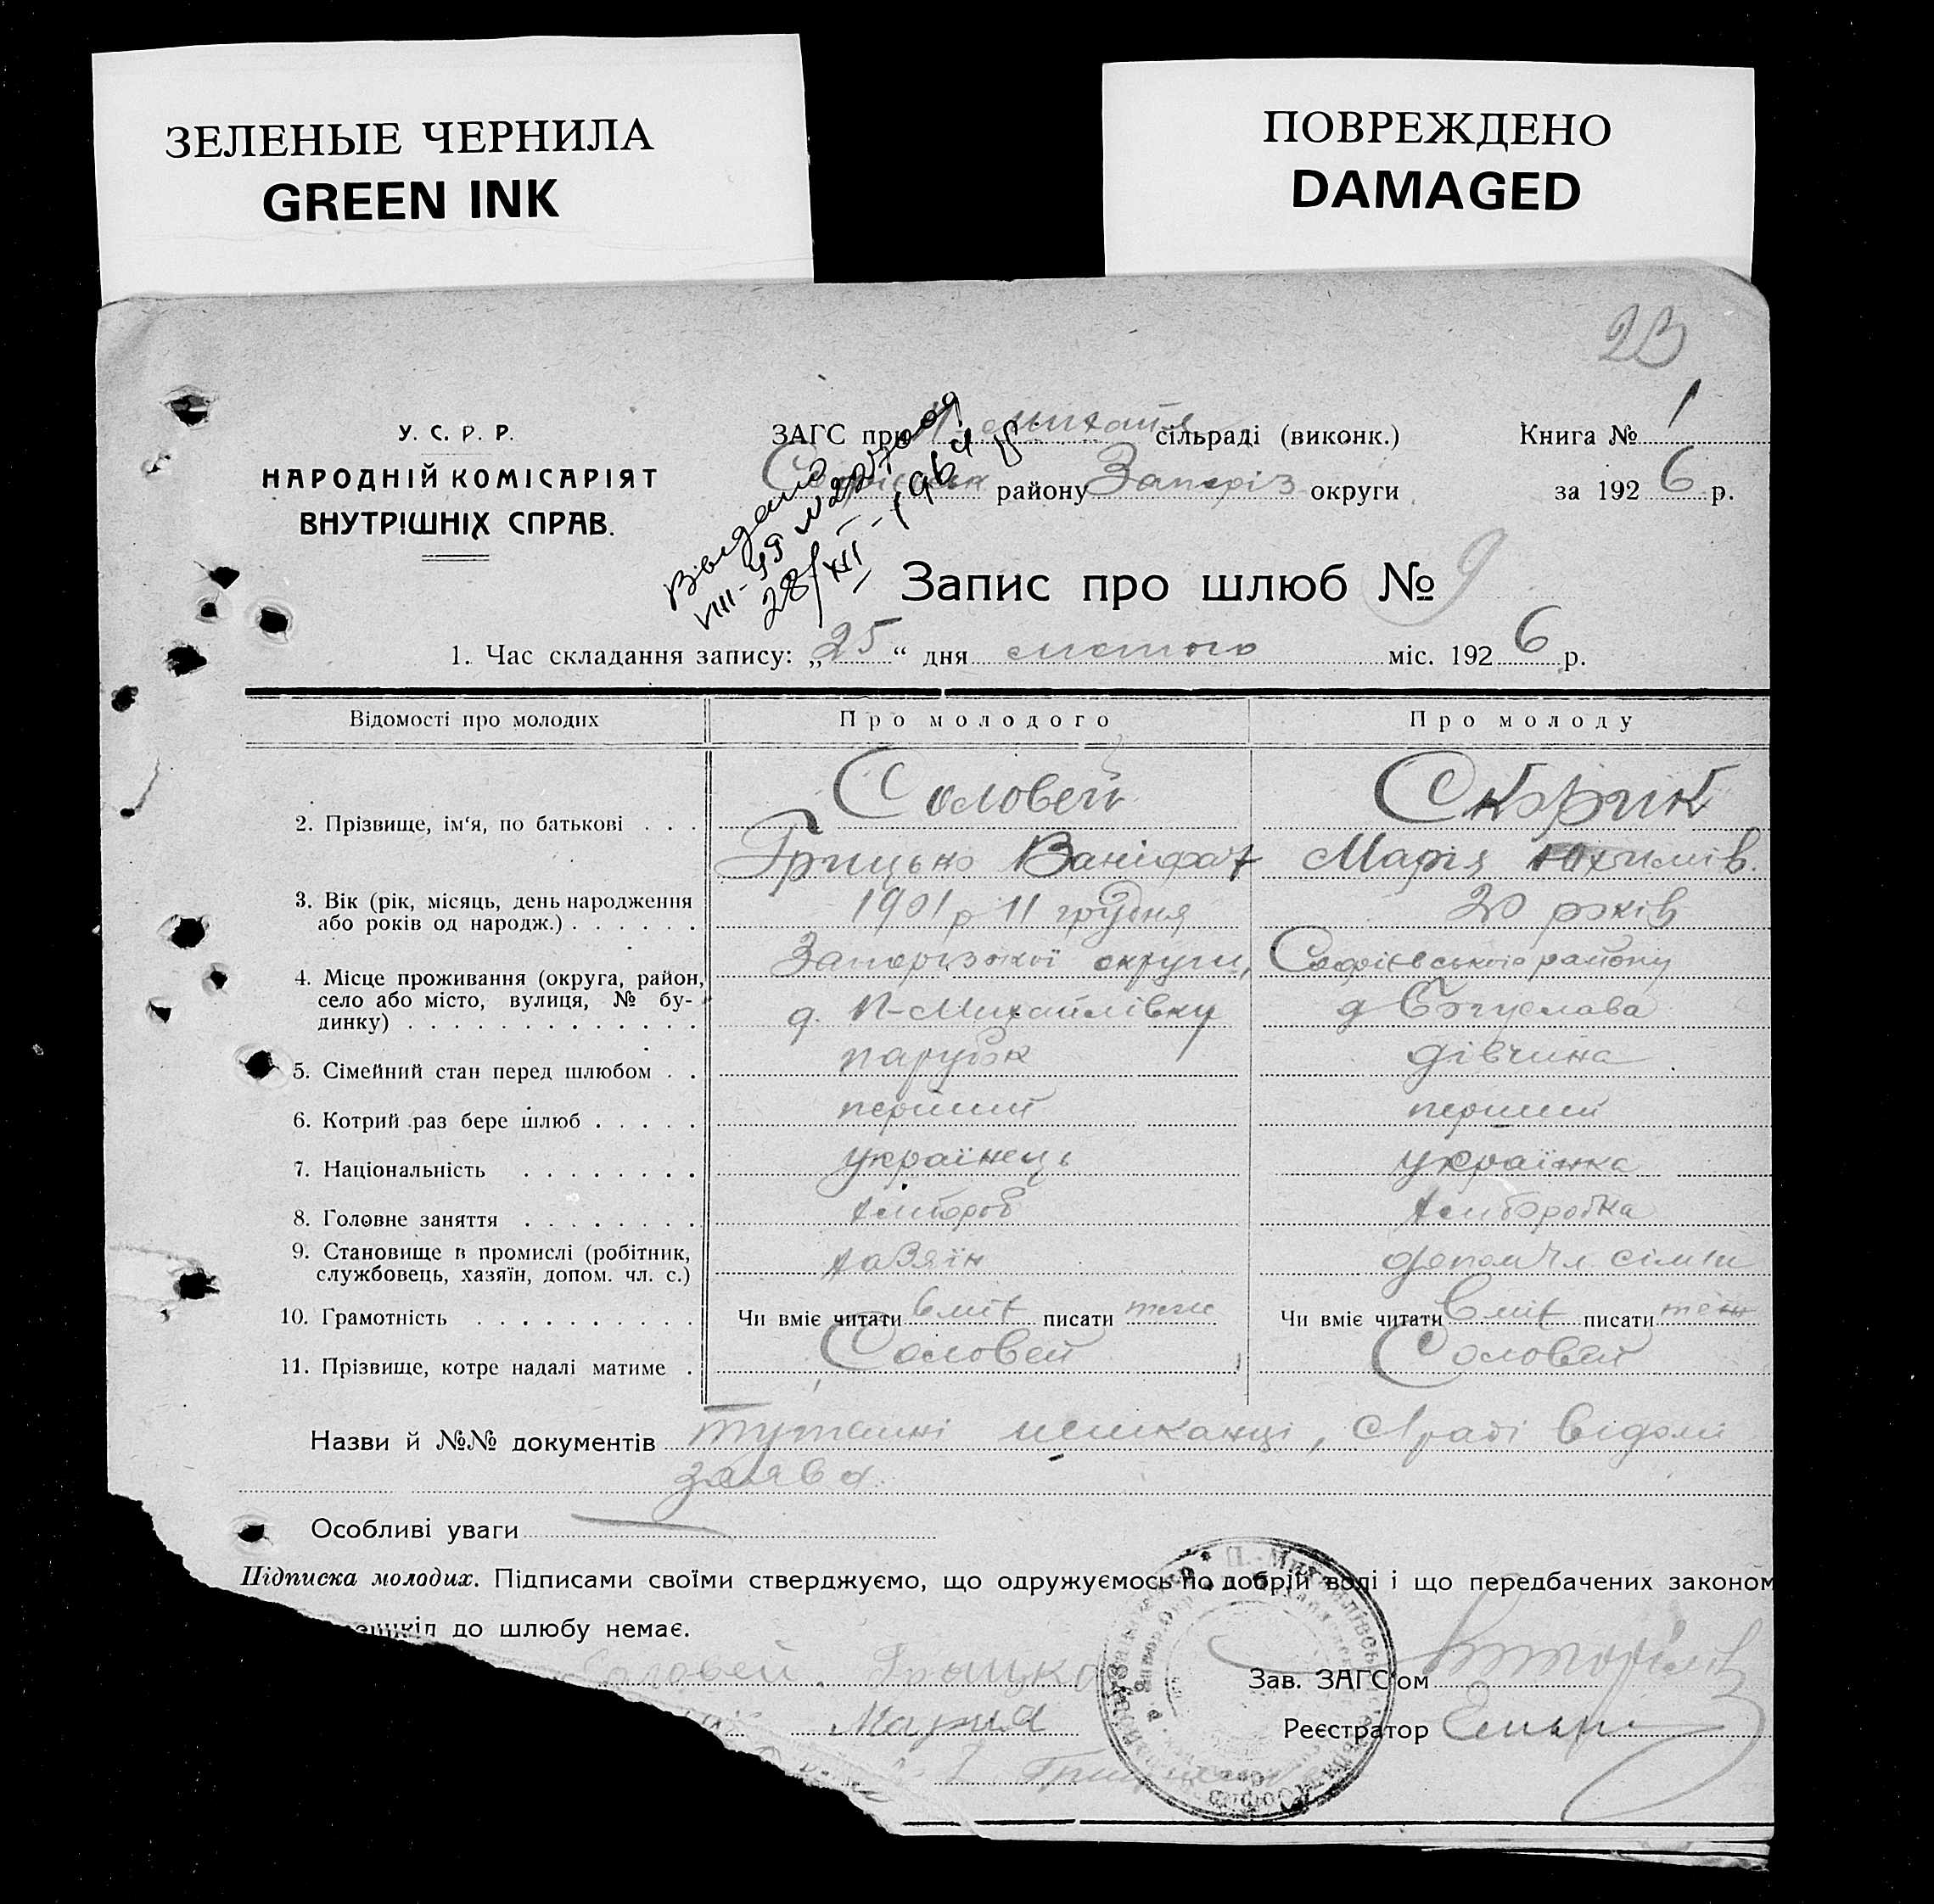 ЗЕЛЕНЫЕ ЧЕРНИЛА
GREEN INK
ПОВРЕЖДЕНО
DAMAGED
23
У. С. Р. Р.
НАРОДНІЙ КОМІСАРІЯТ
ВНУТРІШНІХ СПРАВ.
ЗАГС при П-Михайл сільраді (виконк.)
району Запоріз округи
Книга № 1
за 1926 р.
28/XII-1964
Запис про шлюб № 9
1. Час складання запису: „25“ дня лютого міс. 1926 р.
Відомості про молодих Про молодого Про молоду
2. Прізвище, ім‘я, по батькові . . . Соловей Скорик
Грицько Ваніфат Марія Юхимів.
3. Вік (рік, місяць, день народження
або років од народж.) . . . . . . 1901 р 11 грудня 20 років
4. Місце проживання (округа, район, Запорізької округи, Софієвського району
село або місто, вулиця, № бу-
динку) . . . . . . . . . . . . . д. П-Михайлівку д Богуслава
5. Сімейний стан перед шлюбом . . парубок дівчина
6. Котрий раз бере шлюб . . . . . перший перший
7. Національність . . . . . . . . українець українка
8. Головне заняття . . . . . . . . хлібороб хліборобка
9. Становище в промислі (робітник,
службовець, хазяїн, допом. чл. с.) хазяїн допом чл сімии
10. Грамотність . . . . . . . . . . Чи вміє читати вміє писати теж Чи вміє читати вміє писати теж
11. Прізвище, котре надалі матиме . Соловей Соловей
Назви й №№ документів тутешні мешканці, с/раді відомі
заява
Особливі уваги
Підписка молодих. Підписами своїми стверджуємо, що одружуємось по добрій волі і що передбачених законом
до шлюбу немає.
Соловей Грыцко
Зав. ЗАГС‘ом
Мария
Реєстратор